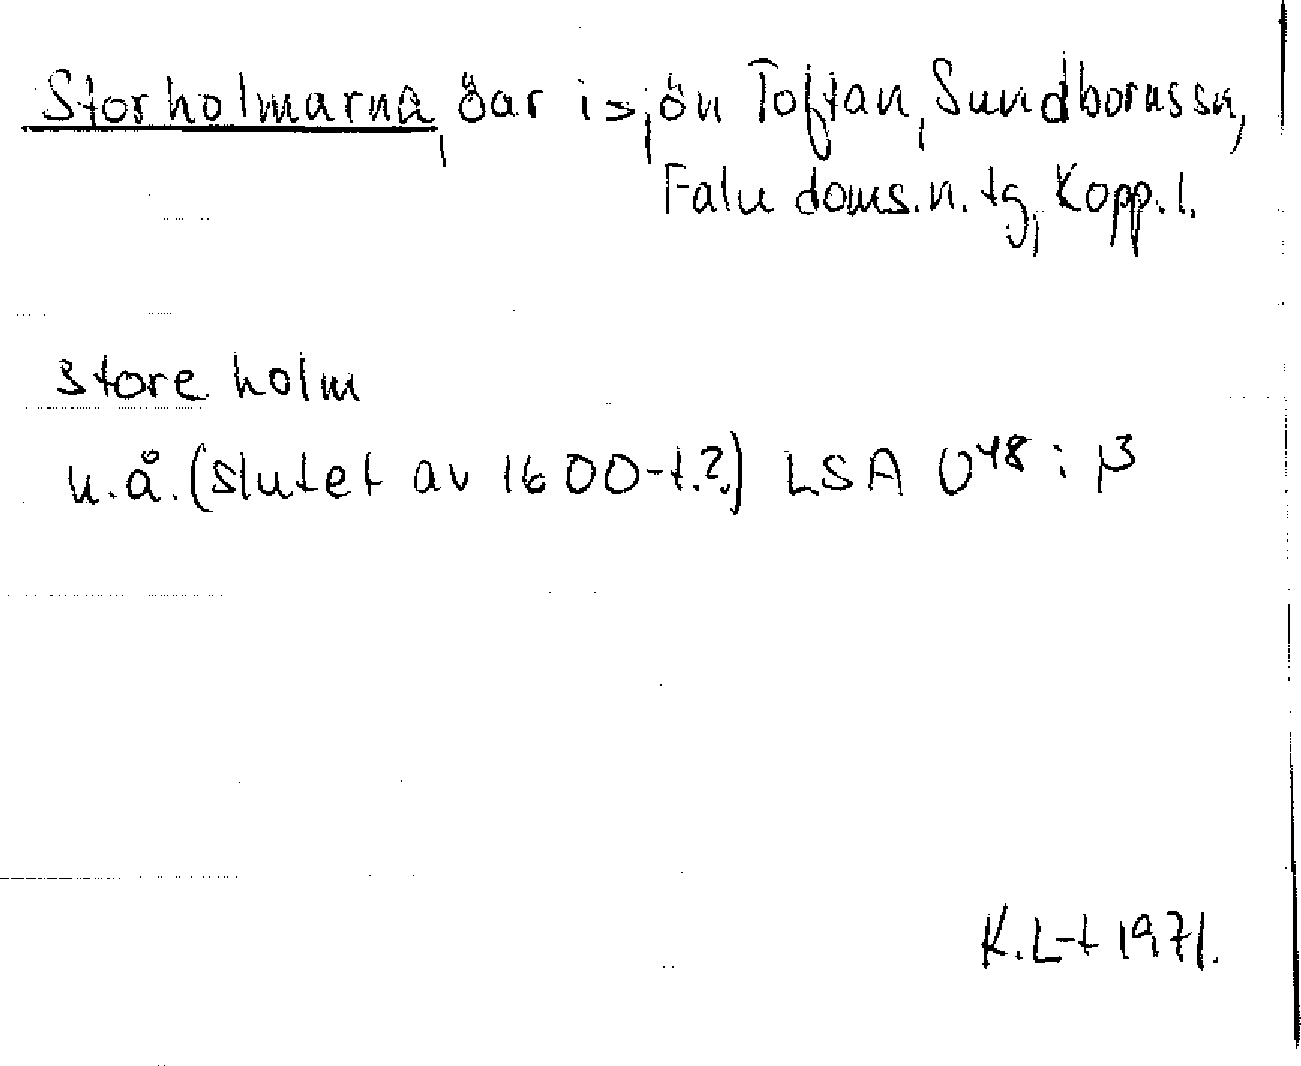 Storholmarna, öar i sjön Toftan, Sundborns sn,
Falu doms.n.tg, Kopp.l.
store holm
u.å. (slutet av 1600-t.?) LSA U⁴⁸: β
K.L-t 1971.